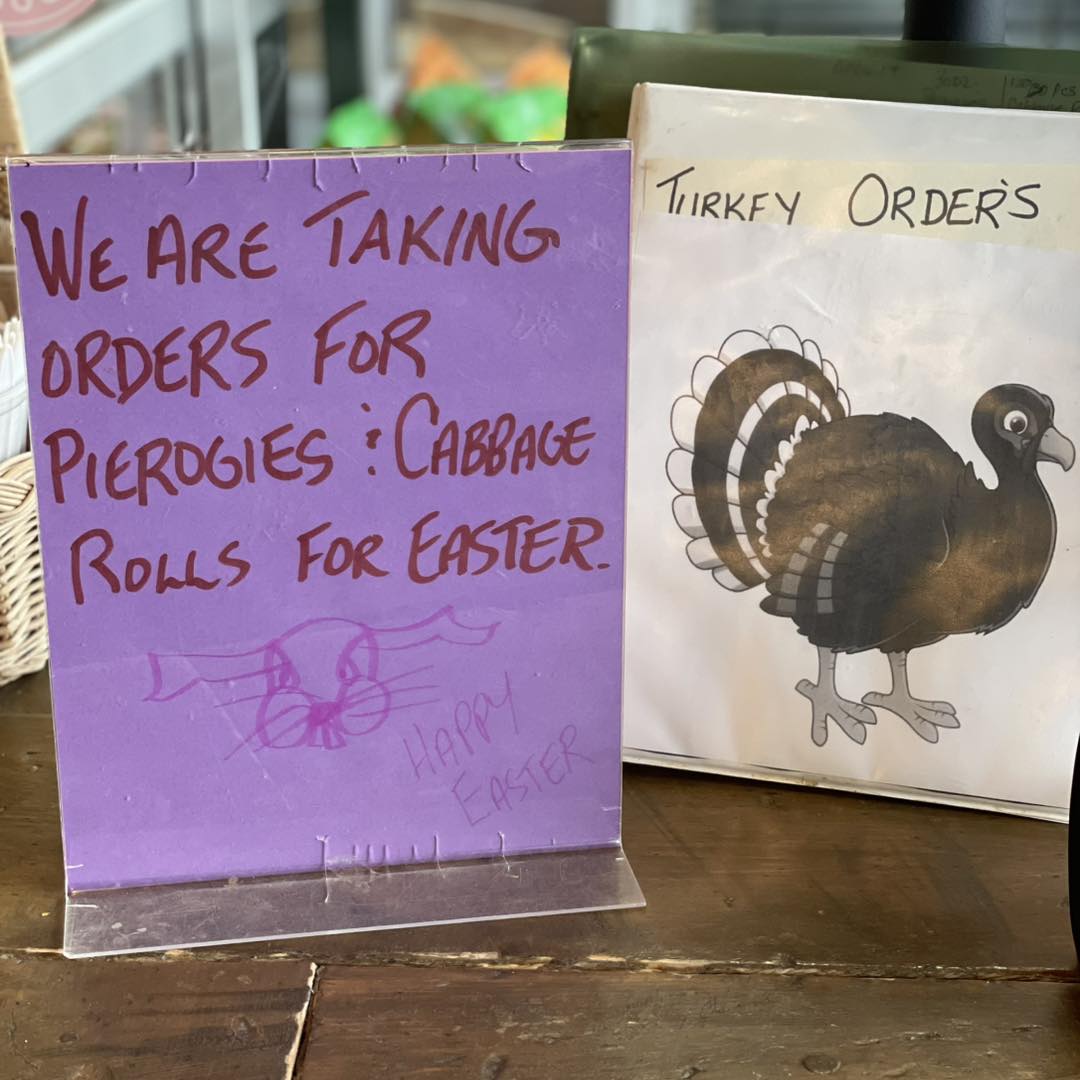 WE ARE TAKING
ORDERS FOR
PIEROGIES & CABBAGE
ROLLS FOR EASTER.
HAPPY
EASTER
TURKEY ORDER'S